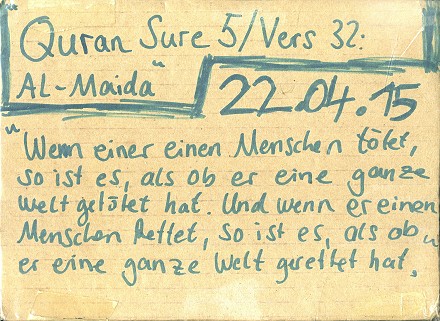 Quran Sure 5/Vers 32:
AL-Maida"
22.04.15
"Wenn einer einen Menschen tötet,
so ist es, als ob er eine ganze
Welt getötet hat. Und wenn er einen
Menschen Rettet, so ist es, als ob
er eine ganze Welt gerettet hat."